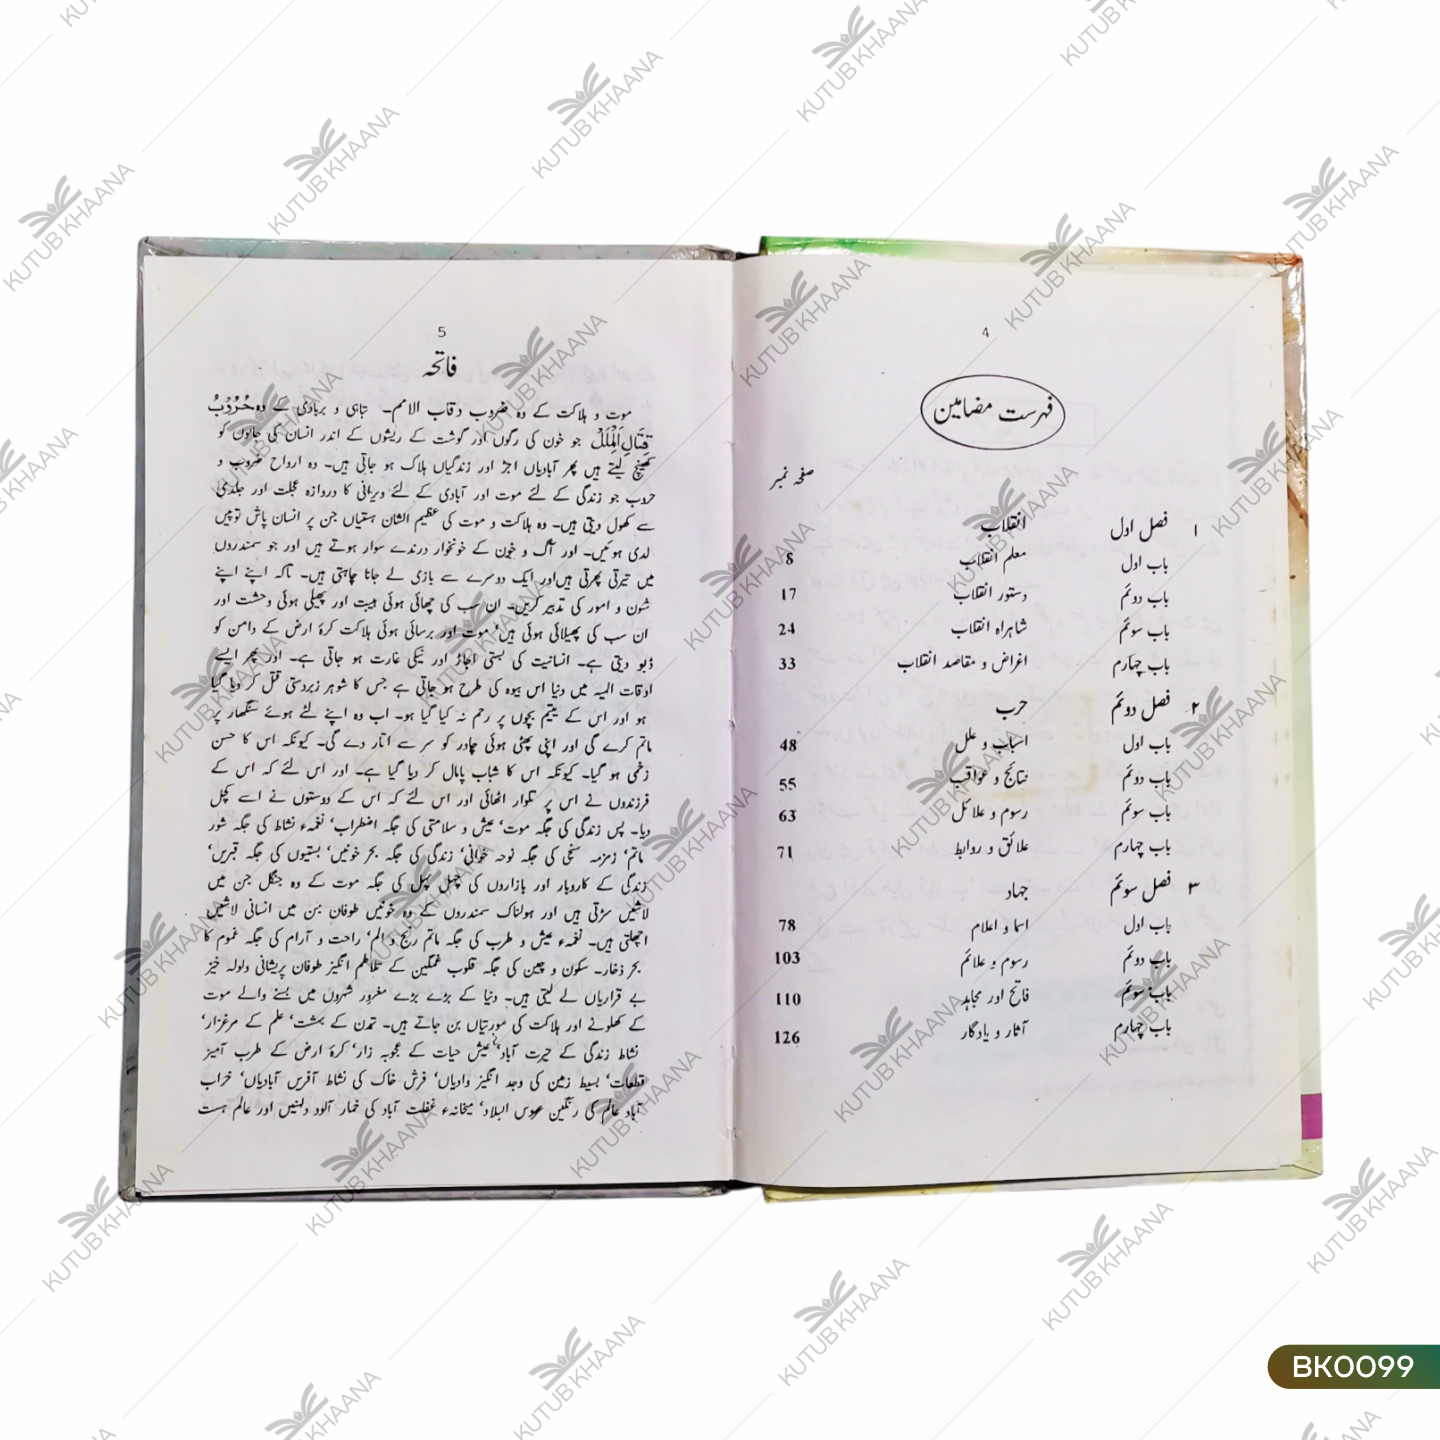 4
فہرست مضامین
صفحہ نمبر
۱ فصل اول انقلاب
باب اول معلم انقلاب 8
باب دوئم دستور انقلاب 17
باب سوئم شاہراہ انقلاب 24
باب چہارم اغراض و مقاصد انقلاب 33
۲ فصل دوئم حرب
باب اول اسباب و علل 48
باب دوئم نتائج و عواقب 55
باب سوئم رسوم و علائل 63
باب چہارم علائق و روابط 71
۳ فصل سوئم جہاد
باب اول اسما و اعلام 78
باب دوئم رسوم و علائم 103
باب سوئم فاتح اور مجاہد 110
باب چہارم آثار و یادگار 126
5
فاتحہ
موت و ہلاکت کے وہ ضروب دقاب الامم۔ تباہی و بربادی کے وہ حُرُوْبُ
قِتَالِ الْمِلَلْ جو خون کی رگوں اور گوشت کے ریشوں کے اندر انسان کی جانوں کو
کھینچ لیتے ہیں پھر آبادیاں اجڑ اور زندگیاں ہلاک ہو جاتی ہیں۔ وہ ارواح ضروب و
حروب جو زندگی کے لئے موت اور آبادی کے لئے ویرانی کا دروازہ عجلت اور جلدی
سے کھول دیتی ہیں۔ وہ ہلاکت و موت کی عظیم الشان ہستیاں جن پر انسان پاش توپیں
لدی ہوئیں۔ اور آگ و خون کے خونخوار درندے سوار ہوتے ہیں اور جو سمندروں
میں تیرتی پھرتی ہیں اور ایک دوسرے سے بازی لے جانا چاہتی ہیں۔ تاکہ اپنے اپنے
شون و امور کی تدبیر کریں۔ ان سب کی چھائی ہوئی ہیبت اور پھیلی ہوئی وحشت اور
ان سب کی پھیلائی ہوئی ہیں، موت اور برسائی ہوئی ہلاکت کرۂ ارض کے دامن کو
ڈبو دیتی ہے۔ انسانیت کی بستی اجاڑ اور نیکی غارت ہو جاتی ہے۔ اور پھر ایسے
اوقات الیمہ میں دنیا اس بیوہ کی طرح ہو جاتی ہے جس کا شوہر زبردستی قتل کر دیا گیا
ہو اور اس کے یتیم بچوں پر رحم نہ کیا گیا ہو۔ اب وہ اپنے لٹے ہوئے سنگھار پر
ماتم کرے گی اور اپنی پھٹی ہوئی چادر کو سر سے اتار دے گی۔ کیونکہ اس کا حسن
زخمی ہو گیا۔ کیونکہ اس کا شباب پامال کر دیا گیا ہے۔ اور اس لئے کہ اس کے
فرزندوں نے اس پر تلوار اٹھائی اور اس لئے کہ اس کے دوستوں نے اسے کچل
دیا۔ پس زندگی کی جگہ موت، عیش و سلامتی کی جگہ اضطراب، نغمہء نشاط کی جگہ شور
ماتم، زمزمہ سنجی کی جگہ نوحہ خوانی، زندگی کی جگہ بحر خونیں، بستیوں کی جگہ قبریں،
زندگی کے کاروبار اور بازاروں کی چہل پہل کی جگہ موت کے وہ جنگل جن میں
لاشیں سڑتی ہیں اور ہولناک سمندروں کے وہ خونیں طوفان جن میں انسانی لاشیں
اچھلتی ہیں۔ نغمہء عیش و طرب کی جگہ ماتم رنج و الم، راحت و آرام کی جگہ غموم کا
بحر ذخار۔ سکون و چین کی جگہ قلوب غمگین کے تلاطم انگیز طوفان پریشانی ولولہ خیز
بے قراریاں لے لیتی ہیں۔ دنیا کے بڑے بڑے مغرور شہروں میں بسنے والے موت
کے کھلونے اور ہلاکت کی مورتیاں بن جاتے ہیں۔ تمدن کے بہشت، علم کے مرغزار،
نشاط زندگی کے حیرت آباد، عیش حیات کے عجوبہ زار، کرۂ ارض کے طرب آمیز
قطعات، بسیط زمین کی وجد انگیز وادیاں، فرش خاک کی نشاط آفریں آبادیاں، خراب
آباد عالم کی رنگین عروس البلاد، میخانہء غفلت آباد کی خمار آلود دلہنیں اور عالم ہست
BK0099
KUTUB KHAANA